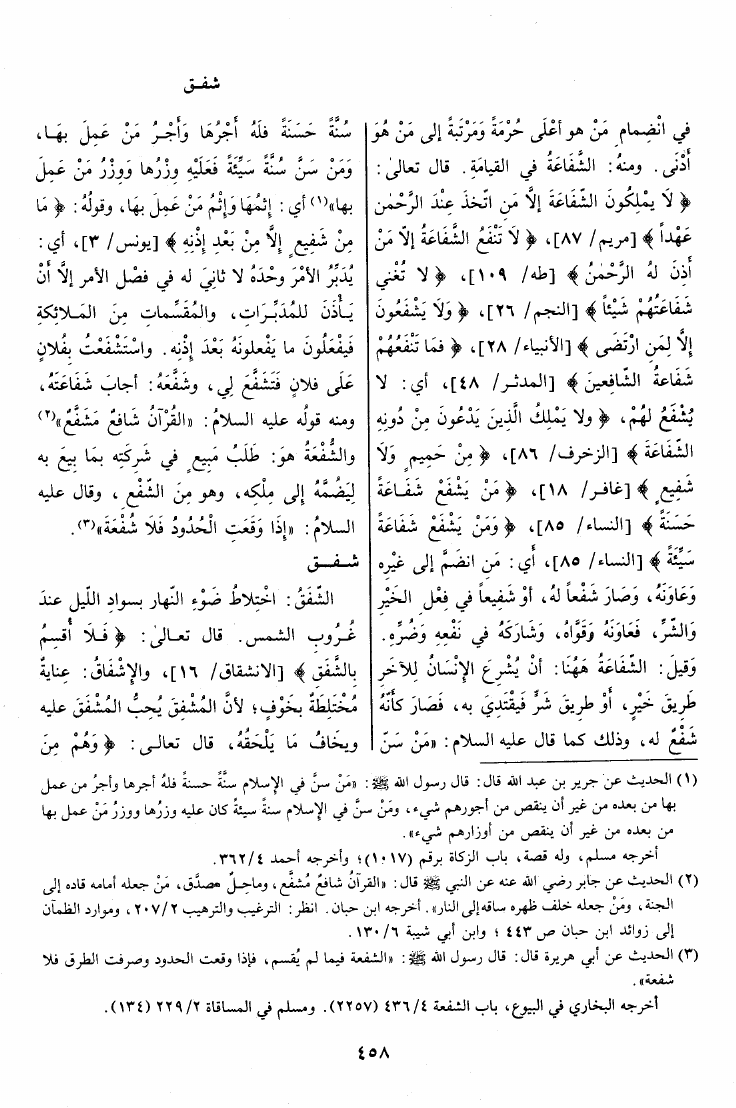 شفـق
في انْضِمامِ مَنْ هو أعْلَى حُرْمَةً وَمَرْتَبَةً إلى مَنْ هُوَ
أَدْنَى. ومنهُ: الشَّفَاعَةُ في القيامَةِ. قال تعالى:
﴿ لَا يَمْلِكُونَ الشَّفَاعَةَ إلَّا مَنِ اتَّخَذَ عِنْدَ الرَّحْمٰنِ
عَهْداً ﴾ [مريم/ ٨٧]، ﴿ لَا تَنْفَعُ الشَّفَاعَةُ إلاَّ مَنْ
أَذِنَ لَهُ الرَّحْمٰنُ ﴾ [طه/ ١٠٩]، ﴿ لا تُغْنِي
شَفَاعَتُهُمْ شَيْئاً ﴾ [النجم/ ٢٦]، ﴿ وَلَا يَشْفَعُونَ
إلَّا لِمَنِ ارْتَضَى ﴾ [الأنبياء/ ٢٨]، ﴿ فمَا تَنْفَعُهُمْ
شَفَاعَةُ الشَّافِعينَ ﴾ [المدثر/ ٤٨]، أي: لا
يُشْفَعُ لهُمْ، ﴿ ولا يَمْلِكُ الَّذِينَ يَدْعُونَ مِنْ دُونِهِ
الشَّفَاعَةَ ﴾ [الزخرف/ ٨٦]، ﴿ مِنْ حَمِيمٍ وَلَا
شَفِيعٍ ﴾ [غافر/ ١٨]، ﴿ مَنْ يَشْفَعْ شَفَاعَةً
حَسَنَةً ﴾ [النساء/ ٨٥]، ﴿ وَمَنْ يَشْفَعْ شَفَاعَةً
سَيِّئَةً ﴾ [النساء/ ٨٥]، أي: مَن انضَمَّ إلى غَيْرِهِ
وَعَاوَنَهُ، وَصَارَ شَفْعاً لهُ، أوْ شَفِيعاً في فِعْلِ الخَيْرِ
وَالشَّرِّ، فَعَاوَنَهُ وَقَوَّاهُ، وَشَارَكَهُ في نَفْعِهِ وَضُرِّهِ.
وَقيلَ: الشَّفَاعَةُ هٰهُنَا: أنْ يُشْرِعَ الإنْسَانُ لِلآخَرِ
طَرِيقَ خَيْرٍ، أوْ طريقَ شَرٍّ فَيَقْتَدِيَ به، فَصَارَ كأنَّهُ
شَفْعٌ له، وذلك كما قال عليه السلام: «مَنْ سَنّ
سُنَّةً حَسَنَةً فَلَهُ أَجْرُهَا وَأَجْرُ مَنْ عَمِلَ بهَـا،
وَمَنْ سَنَّ سُنَّةً سَيِّئَةً فَعَلَيْهِ وِزْرُها وَوِزْرُ مَنْ عَمِلَ
بها»(١) أي: إثمُهَا وَإثْمُ مَنْ عَمِلَ بهَا، وقولُهُ: ﴿ مَا
مِنْ شَفِيعٍ إلَّا مِنْ بَعْدِ إذْنِهِ ﴾ [يونس/ ٣]، أي:
يُدَبِّرُ الأمْرَ وحْدَهُ لا ثانِيَ له في فصْلِ الأمرِ إلَّا أنْ
يَـأْذَنَ للمُدَبِّرَاتِ، والمُقَسِّماتِ مِنَ المَـلائِكةِ
فيَفْعَلُونَ ما يَفْعلونَهُ بَعْدَ إذْنِهِ. واسْتَشْفَعْتُ بِفُلَانٍ
عَلَى فلانٍ فَتَشَفَّعَ لِي، وشَفَّعَهُ: أجابَ شَفَاعَتَهُ،
ومنه قولُه عليه السلامُ: «القُرْآنُ شَافِعٌ مُشَفَّعٌ»(٢)
والشُّفْعَةُ هوَ: طَلَبُ مَبِيعٍ في شَرِكَتِه بمَا بِيعَ به
لِيَضُمَّهُ إلى مِلْكِه، وهو مِنَ الشَّفْعِ، وقال عليه
السلامُ: «إذَا وَقَعَتِ الْحُدُودُ فَلَا شُفْعَةَ»(٣).
شـفـق
الشَّفَقُ: اخْتِلاطُ ضَوْءِ النَّهارِ بسوادِ اللَّيلِ عندَ
غُـروبِ الشمسِ. قال تعـالى: ﴿ فَـلَا أُقْسِمُ
بالشَّفَقِ ﴾ [الانشقاق/ ١٦]، والإشْفَاقُ: عِنايةٌ
مُخْتَلِطَةٌ بخَوْفٍ؛ لأنَّ المُشْفِقَ يُحِبُّ المُشْفَقَ عليه
ويخافُ مَا يَلْحَقُهُ، قال تعالـى: ﴿ وَهُمْ مِنَ
(١) الحديث عن جرير بن عبد الله قال: قال رسول الله ﷺ: «مَنْ سنَّ في الإسلام سنَّةً حسنةً فلهُ أجرها وأجرُ من عمل
بها من بعده من غير أن ينقص من أجورهم شيء، ومَنْ سنَّ في الإسلام سنةً سيئةً كان عليه وزرُها ووزرُ مَنْ عمل بها
من بعده من غير أن ينقص من أوزارهم شيء».
أخرجه مسلم، وله قصة، باب الزكاة برقم (١٠١٧)؛ وأخرجه أحمد ٣٦٢/٤.
(٢) الحديث عن جابر رضي الله عنه عن النبي ﷺ قال: «القرآنُ شافعٌ مُشفَّع، وماحِلٌ مصدَّق، مَنْ جعله أمامه قاده إلى
الجنة، ومَنْ جعله خلف ظهره ساقه إلى النار». أخرجه ابن حبان. انظر: الترغيب والترهيب ٢٠٧/٢، وموارد الظمآن
إلى زوائد ابن حبان ص ٤٤٣ ؛ وابن أبي شيبة ١٣٠/٦.
(٣) الحديث عن أبي هريرة قال: قال رسول الله ﷺ: «الشفعة فيما لم يُقسم، فإذا وقعت الحدود وصرفت الطرق فلا
شفعة».
أخرجه البخاري في البيوع، باب الشفعة ٤٣٦/٤ (٢٢٥٧). ومسلم في المساقاة ٢٢٩/٢ (١٣٤).
٤٥٨